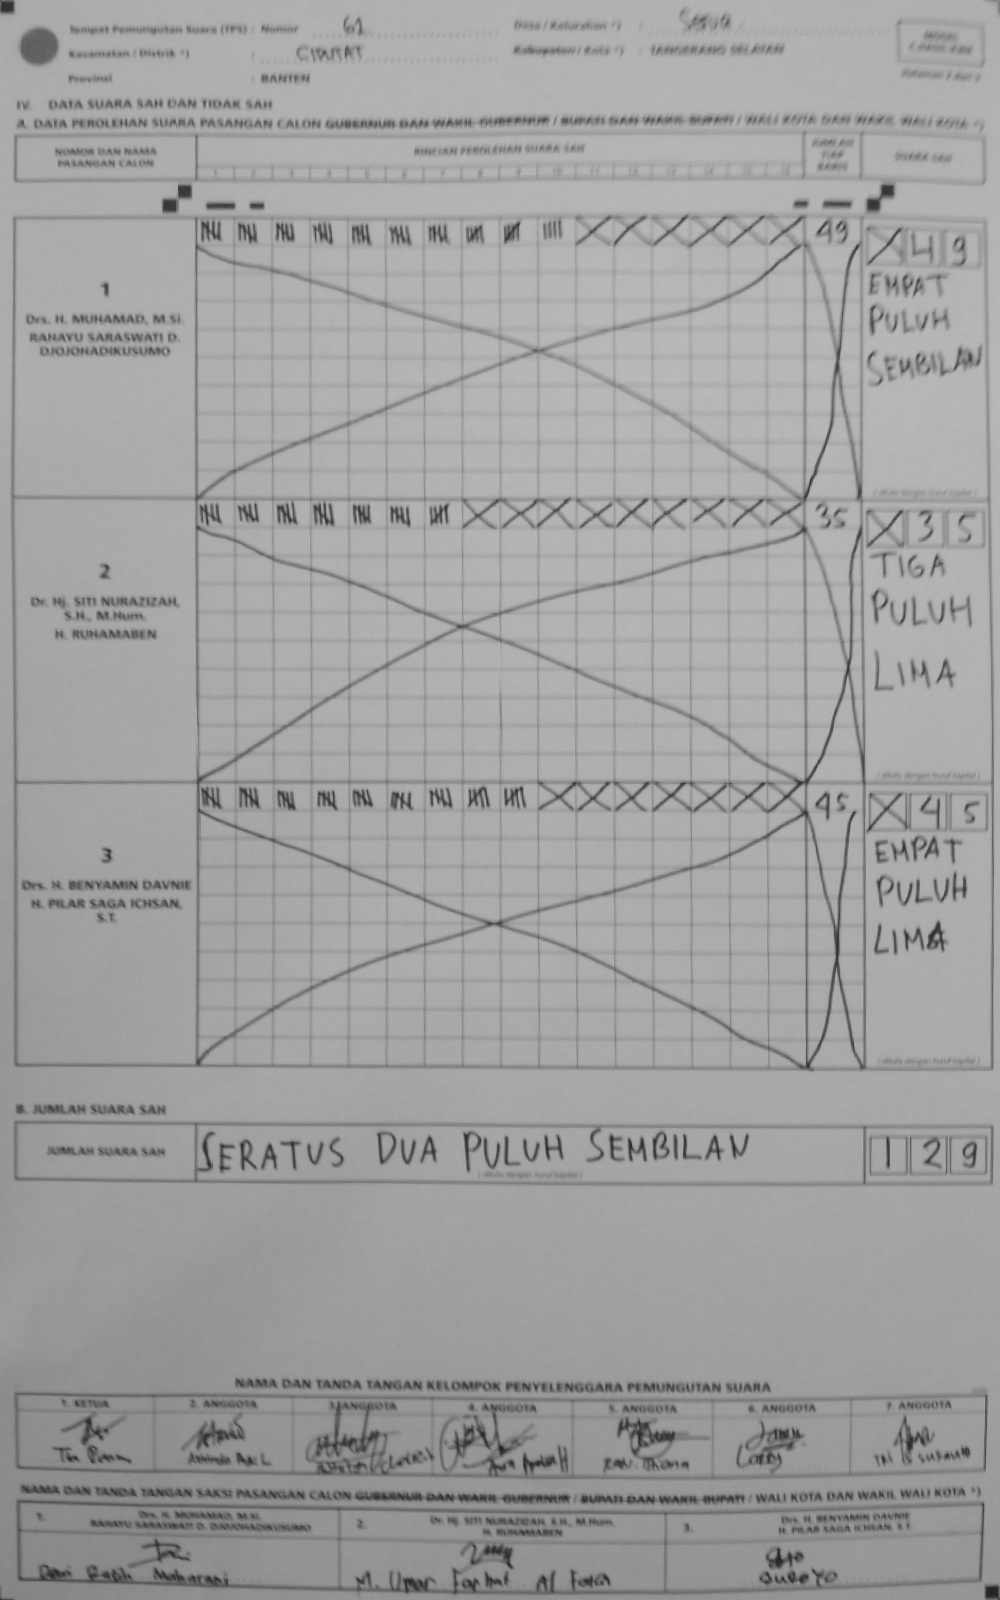 Tempat Pemungutan Suara (TPS) : Nomor 61 Desa / Kelurahan *) :
Kecamatan / Distrik *) : CIPUTAT Kabupaten / Kota *) : TANGERANG SELATAN
Provinsi : BANTEN
IV. DATA SUARA SAH DAN TIDAK SAH
A. DATA PEROLEHAN SUARA PASANGAN CALON GUBERNUR DAN WAKIL GUBERNUR / BUPATI DAN WAKIL BUPATI / WALI KOTA DAN WAKIL WALI KOTA *)
NOMOR DAN NAMA PASANGAN CALON
RINCIAN PEROLEHAN SUARA SAH
1 2 3 4 5 6 7 8 9 10 11 12 13 14 15 16
JUMLAH TIAP BARIS
SUARA SAH
1
Drs. H. MUHAMAD, M.Si.
RAHAYU SARASWATI D.
DJOJOHADIKUSUMO
49
X 4 9
EMPAT
PULUH
SEMBILAN
2
Dr. Hj. SITI NURAZIZAH,
S.H., M.Hum.
H. RUHAMABEN
35
X 3 5
TIGA
PULUH
LIMA
3
Drs. H. BENYAMIN DAVNIE
H. PILAR SAGA ICHSAN,
S.T.
45
X 4 5
EMPAT
PULUH
LIMA
B. JUMLAH SUARA SAH
JUMLAH SUARA SAH
SERATUS DUA PULUH SEMBILAN
(ditulis dengan huruf kapital)
1 2 9
NAMA DAN TANDA TANGAN KELOMPOK PENYELENGGARA PEMUNGUTAN SUARA
1. KETUA 2. ANGGOTA 3. ANGGOTA 4. ANGGOTA 5. ANGGOTA 6. ANGGOTA 7. ANGGOTA
NAMA DAN TANDA TANGAN SAKSI PASANGAN CALON GUBERNUR DAN WAKIL GUBERNUR / BUPATI DAN WAKIL BUPATI / WALI KOTA DAN WAKIL WALI KOTA *)
1. Drs. H. MUHAMAD, M.Si.
RAHAYU SARASWATI D. DJOJOHADIKUSUMO
2. Dr. Hj. SITI NURAZIZAH, S.H., M.Hum.
H. RUHAMABEN
3. Drs. H. BENYAMIN DAVNIE
H. PILAR SAGA ICHSAN, S.T.
Ratih Maharani
M. Umar Farhat Al
SUROYO